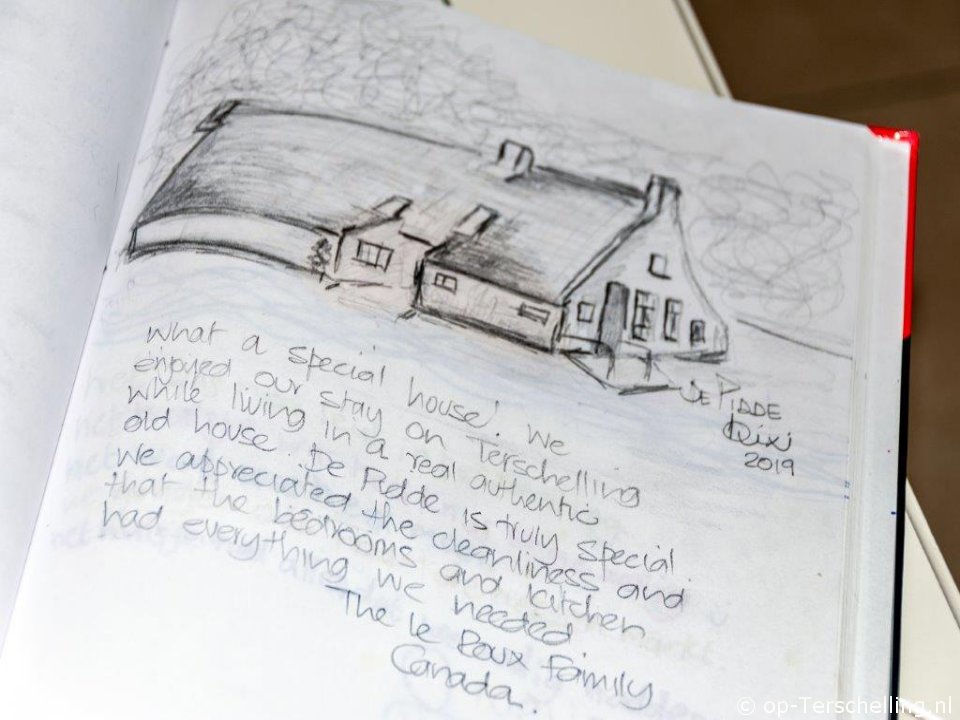 DE PIDDE
Dixi
2019
What a special house! We
enjoyed our stay on Terschelling
while living in a real authentic
old house. De Pidde is truly special.
We appreciated the cleanliness and
that the bedrooms and kitchen
had everything we needed
The le Roux Family
Canada.
© op-Terschelling.nl